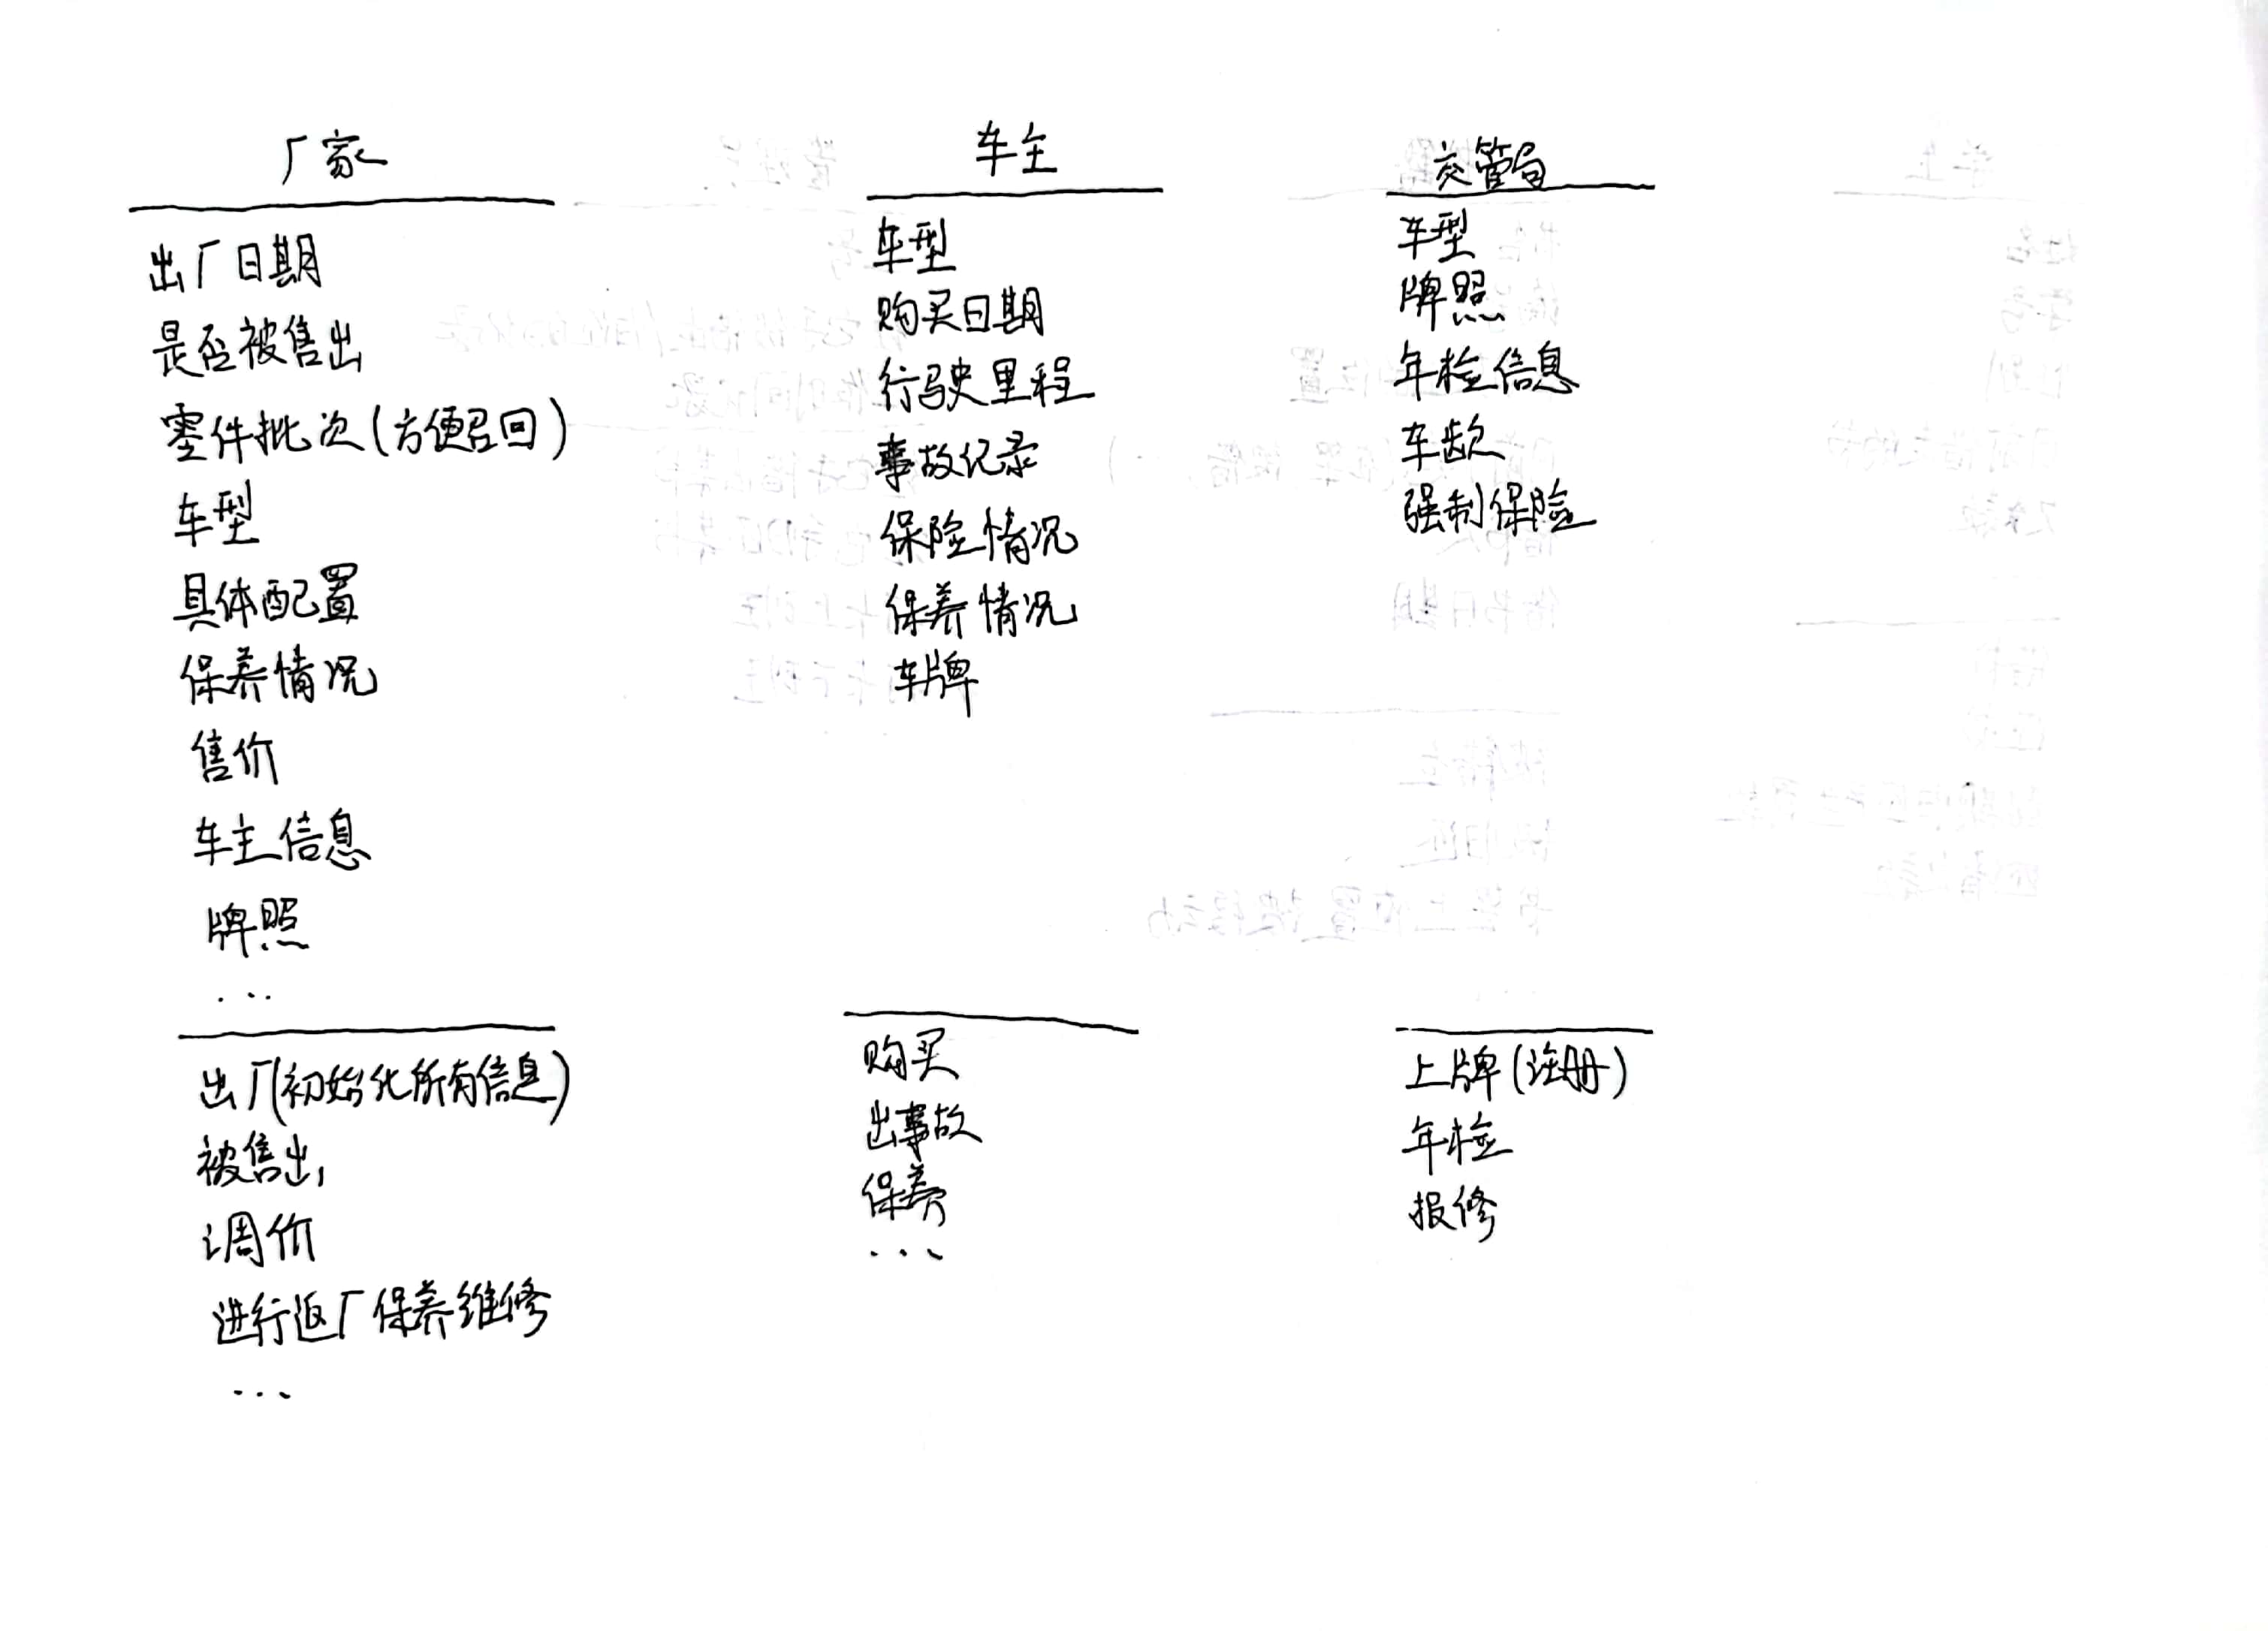 厂家
出厂日期
是否被售出
零件批次(方便召回)
车型
具体配置
保养情况
售价
车主信息
牌照
...
出厂(初始化所有信息)
被售出
调价
进行返厂保养维修
...
车主
车型
购买日期
行驶里程
事故纪录
保险情况
保养情况
车牌
购买
出事故
保养
...
交管局
车型
牌照
年检信息
车龄
强制保险
上牌(注册)
年检
报修